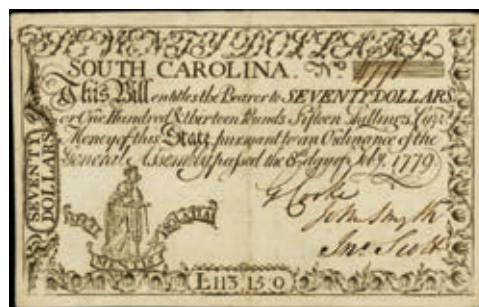 SEVENTY DOLLARS.
SOUTH CAROLINA. No.
This Bill entitles the Bearer to SEVENTY DOLLARS,
or One Hundred & therteen Pounds Fifteen Shillings Curr.t
Money of this State, pursuant to an Ordinance of the
General Assembly passed the 8th day of Feb.y 1779
SEVENTY
DOLLARS
G Cooke
John Smyth
Jno. Scott
£113,15,0